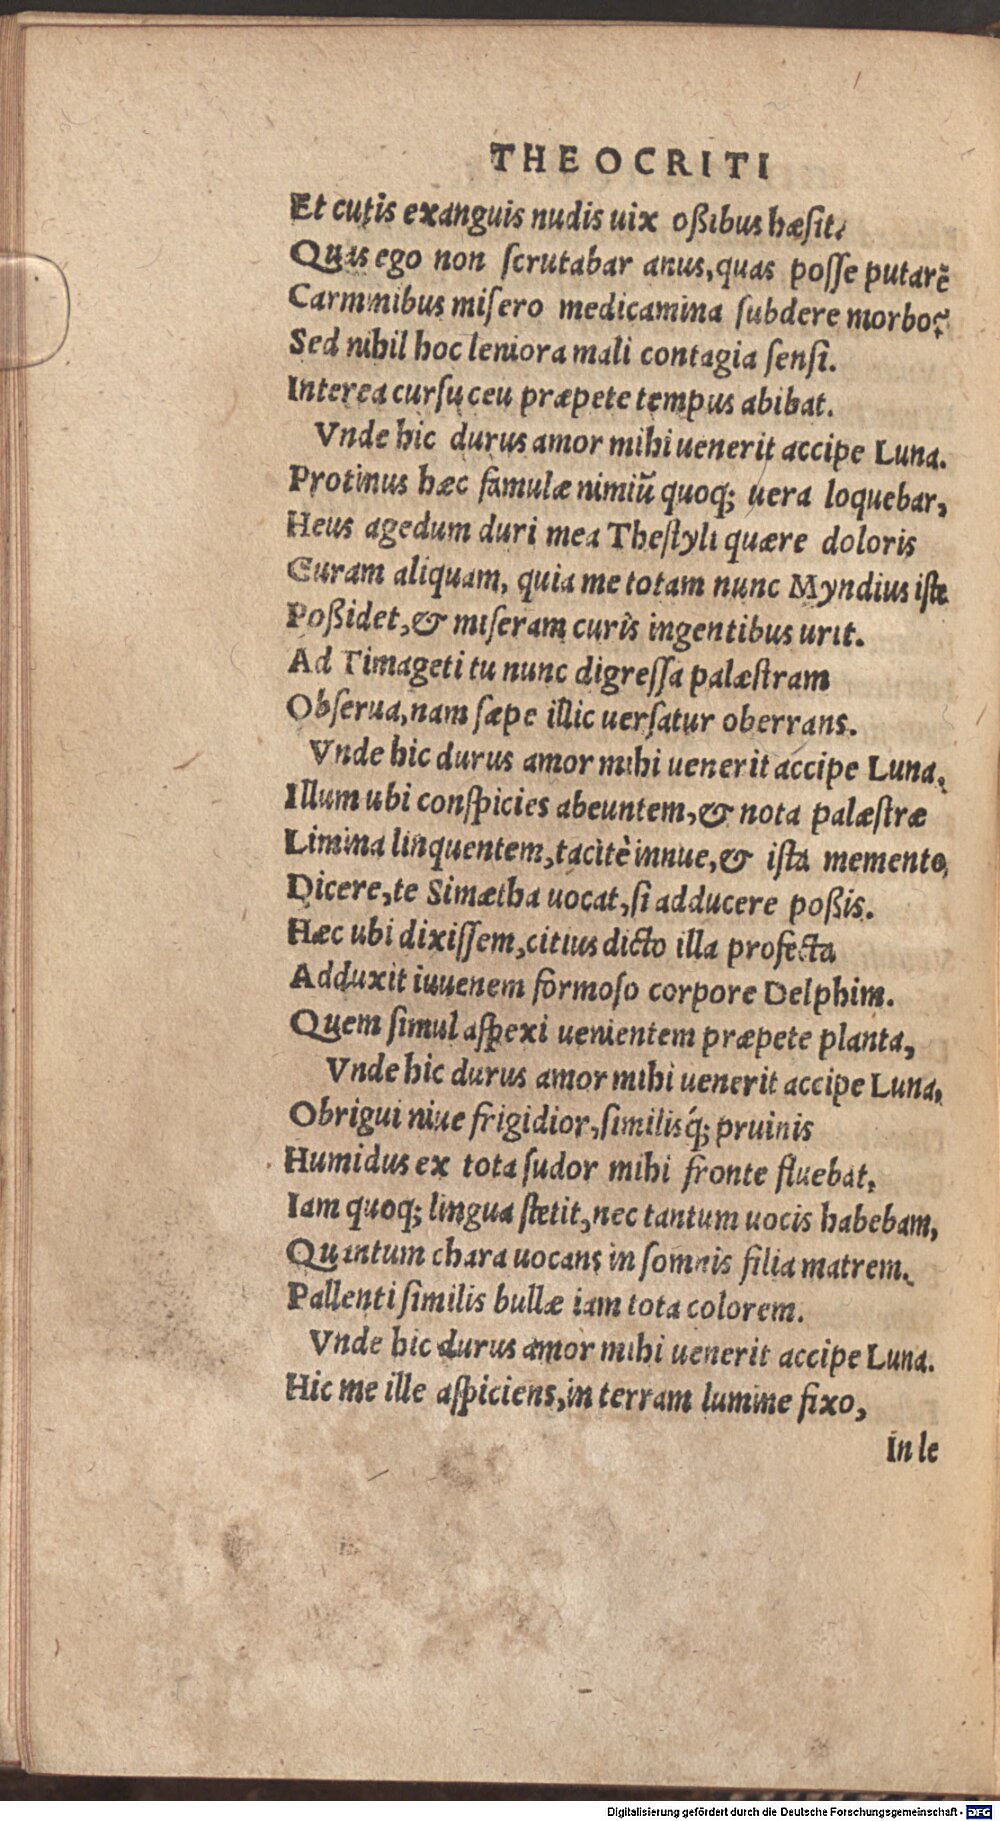 THEOCRITI
Et cutis exanguis nudis uix oßibus hæsit.
Quas ego non scrutabar anus, quas posse putarẽ
Carminibus misero medicamina subdere morbo?
Sed nihil hoc leniora mali contagia sensi.
Interea cursu ceu præpete tempus abibat.
Vnde hic durus amor mihi uenerit accipe Luna.
Protinus hæc famulæ nimiũ quoq; uera loquebar,
Heus agedum duri mea Thestyli quære doloris
Curam aliquam, quia me totam nunc Myndius iste
Poßidet, & miseram curis ingentibus urit.
Ad Timageti tu nunc digressa palæstram
Obserua, nam sæpe illic uersatur oberrans.
Vnde hic durus amor mihi uenerit accipe Luna.
Illum ubi conspicies abeuntem, & nota palæstræ
Limina linquentem, tacitè innue, & ista memento,
Dicere, te Simætha uocat, si adducere poßis.
Hæc ubi dixissem, citius dicto illa profecta
Adduxit iuuenem formoso corpore Delphim.
Quem simul aspexi uenientem præpete planta,
Vnde hic durus amor mihi uenerit accipe Luna.
Obrigui niue frigidior, similisq́; pruinis
Humidus ex tota sudor mihi fronte fluebat.
Iam quoq; lingua stetit, nec tantum uocis habebam,
Quantum chara uocans in somnis filia matrem.
Pallenti similis bullæ iam tota colorem.
Vnde hic durus amor mihi uenerit accipe Luna.
Hic me ille aspiciens, in terram lumine fixo,
In le
Digitalisierung gefördert durch die Deutsche Forschungsgemeinschaft - DFG